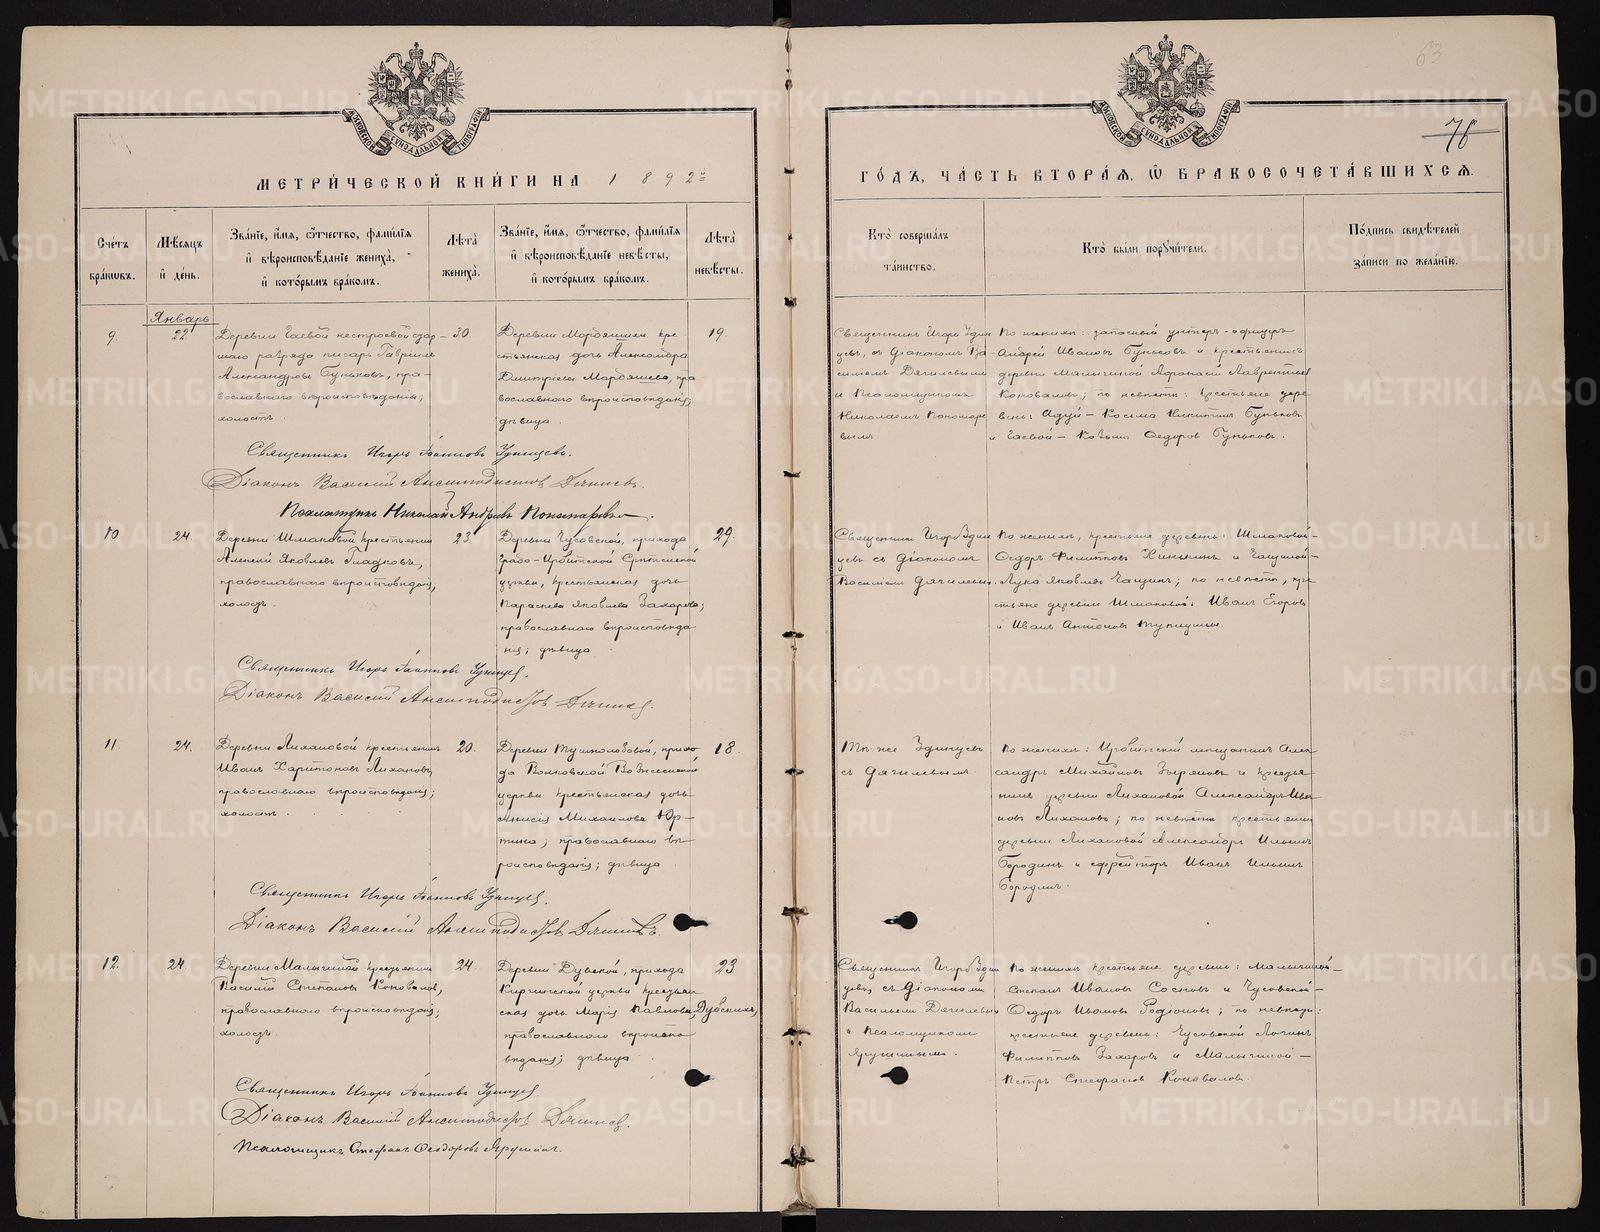 63
76
МЕТРИ́ЧЕСКОЙ КНИ́ГИ НА 1892й
ГО́ДЪ, ЧА́СТЬ ВТОРА́Я, Ѡ БРАКОСОЧЕТА́ВШИХСЯ.
Сче́тъ бра́кѡвъ.
Мѣ́сяцъ и де́нь.
Зва́нїе, и́мя, ѻ́тчество, фами́лїя
и вѣроисповѣ́данїе жениха̀,
и кото́рымъ бра́комъ.
Лѣта̀ жениха̀.
Зва́нїе, и́мя, ѻ́тчество, фами́лїя
и вѣроисповѣ́данїе невѣ́сты,
и кото́рымъ бра́комъ.
Лѣта̀ невѣ́сты.
Кто̀ соверша́лъ
та́инство.
Кто̀ бы́ли порꙋчи́тели.
По́дпись свидѣ́телей
за́писи по жела́нїю.
Январь
9.
22.
Деревни Гаевой нестроевой стар-
шаго разряда писарь Гавріилъ
Александровъ Буньковъ, пра-
вославнаго вѣроисповѣданія;
холостъ.
30.
Деревни Мордяшихи кре-
стьянская дочь Александра
Дмитріева Мордяшева, пра
вославнаго вѣроисповѣданія;
дѣвица.
19.
Священникъ Игорь Удин
цевъ, съ діакономъ Ва
силіемъ Дягилевымъ
и псаломщикомъ
Николаемъ Пономаре
вымъ
По женихѣ: запасный унтеръ-офицеръ
Андрей Ивановъ Буньковъ и крестьянинъ
деревни Малыгиной Афанасій Лаврентьев
Коноваловъ; по невѣстѣ: крестьяне дере
вень: Адуй - Косьма Никитинъ Буньковъ
и Гаевой - Козьма Ѳедоровъ Буньковъ.
Священникъ Игорь Іоанновъ Удинцевъ.
Діаконъ Василій Анемподистовъ Дягилевъ.
Псаломщикъ Николай Андреевъ Пономаревъ.
10
24.
Деревни Шмаковой крестьянинъ
Алексѣй Яковлевъ Гладковъ,
православнаго вѣроисповѣданія,
холостъ.
23.
Деревни Чусовской, прихода
Градо-Ирбитской Срѣтенской
церкви, крестьянская дочь
Параскева Яковлева Захарова;
православнаго вѣроисповѣда
нія; дѣвица
29.
Священникъ Игорь Удин
цевъ съ діакономъ
Василіемъ Дягилевымъ.
По женихѣ, крестьяне деревень: Шмаковой-
Ѳедоръ Филипповъ и Гащиной-
Лука Яковлевъ Гащинъ; по невѣстѣ, кре
стьяне деревни Шмаковой: Иванъ Егоровъ
и Иванъ Антоновъ
Священникъ Игорь Іоанновъ Удинцевъ.
Діаконъ Василій Анемподистовъ Дягилевъ.
11.
24.
Деревни Лихановой крестьянинъ
Иванъ Харитоновъ Лихановъ,
православнаго вѣроисповѣданія;
холостъ.
20.
Деревни Тушнолобовой, прихо-
да Волковской Вознесенской
церкви крестьянская дочь
Михаилова Юр-
тина, православнаго вѣ-
роисповѣданія; дѣвица
18.
Тѣ же Удинцевъ
съ Дягилевымъ.
По женихѣ: Ирбитскій мѣщанинъ Алек-
сандръ Михайловъ Зыряновъ и крестья-
нинъ деревни Лихановой Александръ Ива
новъ Лихановъ; по невѣстѣ крестьянинъ
деревни Лихановой Александръ Ильинъ
Бородинъ и ефрейторъ Иванъ Ильинъ
Бородинъ.
Священникъ Игорь Іоанновъ Удинцевъ.
Діаконъ Василій Анемподистовъ Дягилевъ.
12.
24
Деревни Малыгиной крестьянинъ
Василій Степановъ Коноваловъ,
православнаго вѣроисповѣданія;
холостъ.
24.
Деревни Дубской, прихода
Киргинской церкви крестьян
ская дочь Марія Павлова Дубскихъ,
православнаго вѣроиспо
вѣданія; дѣвица
23.
Священникъ Игорь Удин
цевъ, съ діакономъ
Василіемъ Дягилевымъ
и псаломщикомъ
Ярушинымъ.
По женихѣ крестьяне деревень: Малыгиной-
Степанъ Ивановъ Сосновъ и Чусовской-
Ѳедоръ Ивановъ Родіоновъ; по невѣстѣ:
крестьяне деревень: Чусовской Логинъ
Филипповъ Захаровъ и Малыгиной -
Петръ Стефановъ Коноваловъ.
Священникъ Игорь Іоанновъ Удинцевъ
Діаконъ Василій Анемподистовъ Дягилевъ.
Псаломщикъ Стефанъ Ѳеодоровъ Ярушинъ.
METRIKI.GASO-URAL.RU